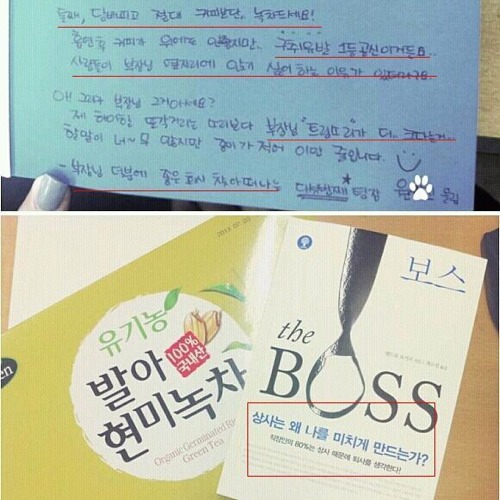 둘째, 담배피고 절대 커피보단, 녹차드세요!
흡연후 커피가 위에도 안좋지만.. 구취유발 1등공신이거든요..
사람들이 부장님 옆자리에 앉기 싫어 하는 이유가 있더라구요.
아! 그리고 부장님 그거아세요?
제 하이힐 또각거리는 소리보다 부장님 "트림소리"가 더.. 크다는거...
할말이 너~무 많지만 종이가 적어 이만 줄입니다.
- 부장님 덕분에 좋은 회사 찾아 떠나는 다섯번째 팀장 윤 올림
2013.07.05
유기농
발아
현미녹차
100%
국내산
Organic Germinated
Green Tea
보스
the
BOSS
상사는 왜 나를 미치게 만드는가?
직장인의 80%는 상사 때문에 퇴사를 생각한다!